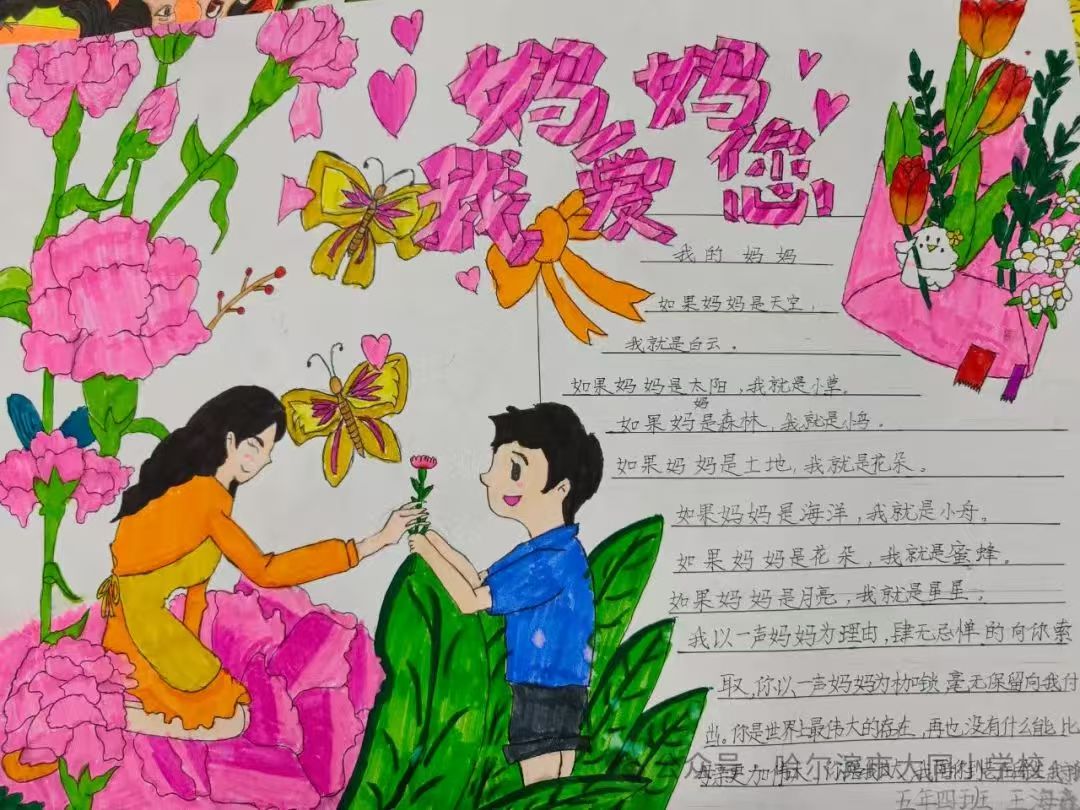 妈妈
我爱您!
我的妈妈
如果妈妈是天空，
我就是白云。
如果妈妈是太阳，我就是小草。
如果妈妈是森林，我就是小鸟。
如果妈妈是土地，我就是花朵。
如果妈妈是海洋，我就是小舟。
如果妈妈是花朵，我就是蜜蜂。
如果妈妈是月亮，我就是星星。
我以一声妈妈为理由，肆无忌惮的向你索
取，你以一声妈妈为枷锁毫无保留向我付
出。你是世界上最伟大的存在，再也没有什么能比
母亲更加伟大
公众号·哈尔滨市大同小学校
五年四班 王海